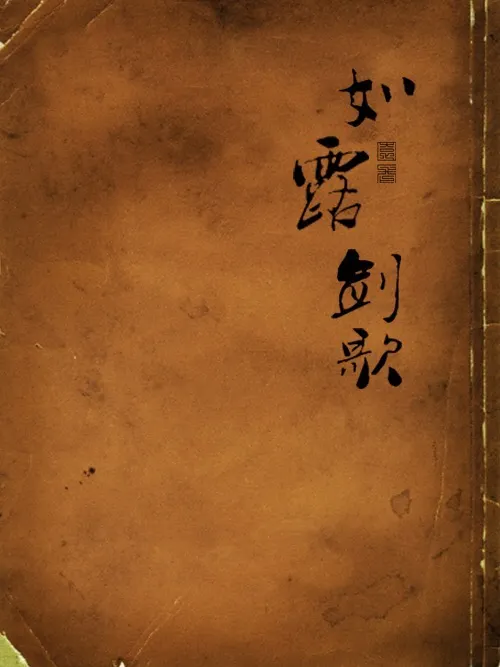 如露剑歌